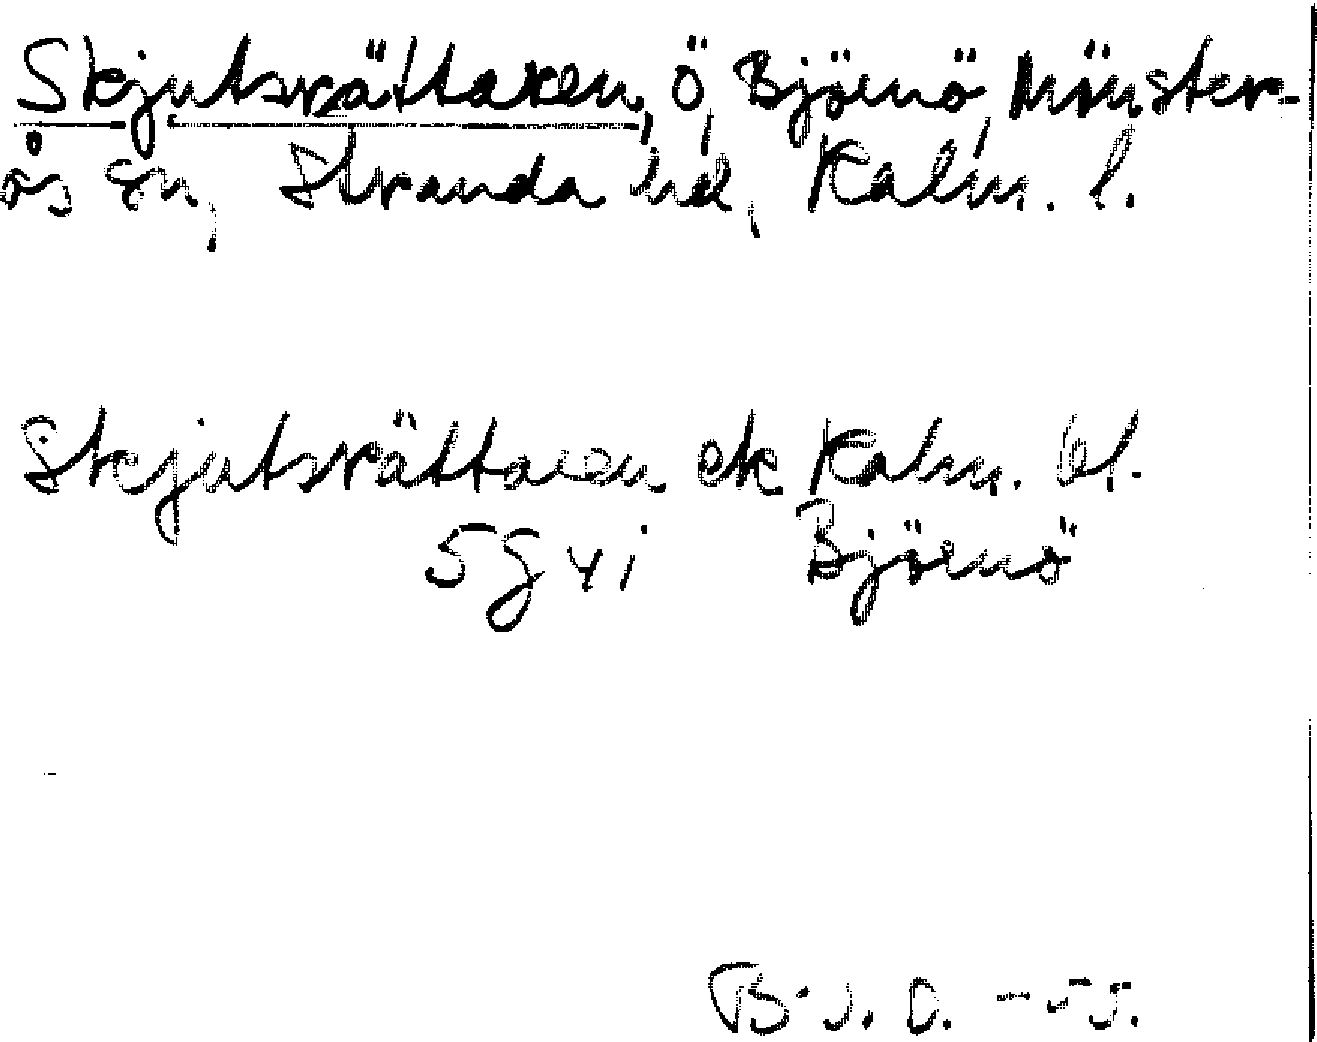 Skjutsrättaren, ö, Björnö, Mönster-
ås sn, Stranda hd, Kalm. l.
Skjutsrättaren ek Kalm. bl.
5g4i Björnö
B.J.O. -55.